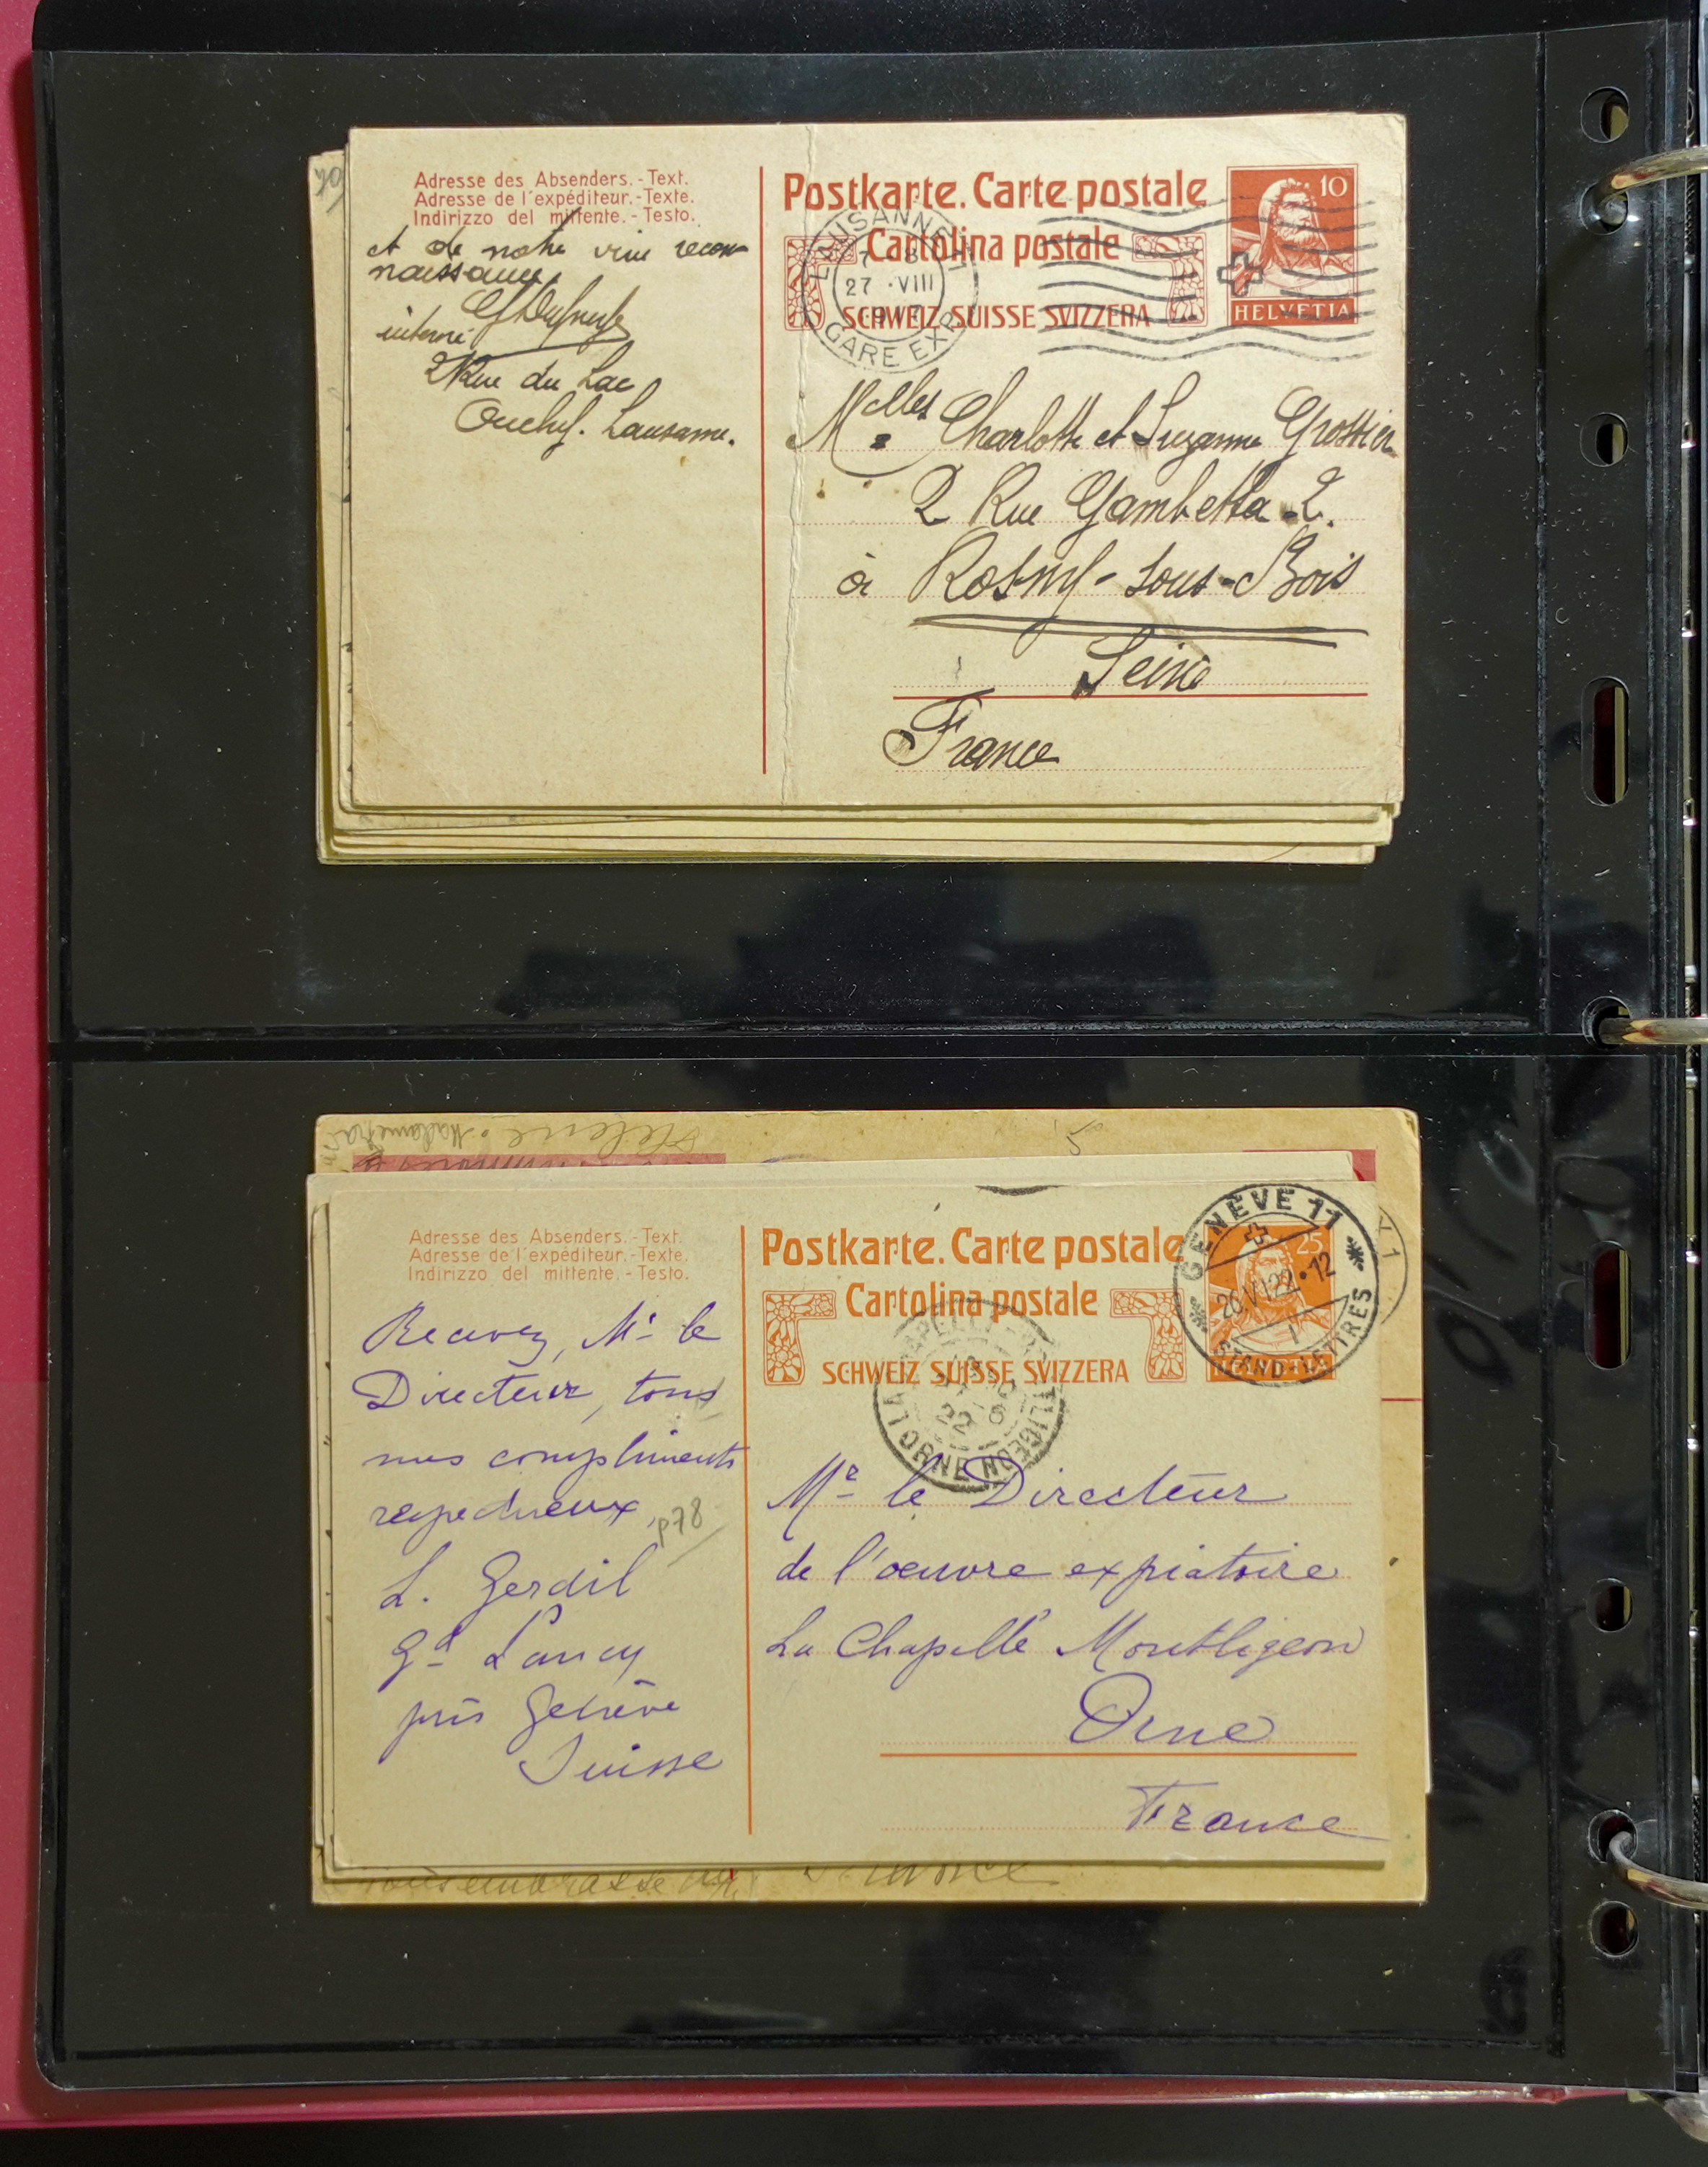 Adresse des Absenders.-Text.
Adresse de l'expéditeur.-Texte.
Indirizzo del mittente.-Testo.
et de notre vive recon-
naissance
interné
2 Rue du Lac
Ouchy. Lausanne.
Postkarte. Carte postale
Cartolina postale
SCHWEIZ SUISSE SVIZZERA
10
HELVETIA
LAUSANNE
27.VIII
GARE EXP.
Melles Charlotte et Suzanne Grossier
2 Rue Gambetta 2.
à Rosny-sous-Bois
Seine
France
Adresse des Absenders.-Text.
Adresse de l'expéditeur.-Texte.
Indirizzo del mittente.-Testo.
Recevez, Mr le
Directeur, tous
mes compliments
respectueux
p78
L. Gerdil
Gd Lancy
près Genève
Suisse
Postkarte. Carte postale
Cartolina postale
SCHWEIZ SUISSE SVIZZERA
25
GENÈVE 11
26.VI.22.12
STAND-LETTRES
LA CHAPELLE-MONTLIGEON
22
ORNE
Mr le Directeur
de l'oeuvre expiatoire
La Chapelle Montligeon
Orne
France